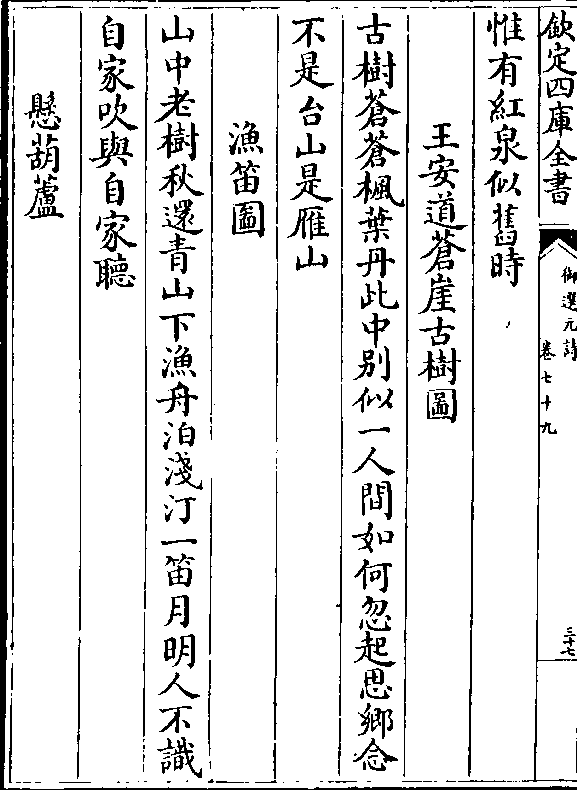 欽定四庫全書
御選元詩
卷七十九
三十七
惟有紅泉似舊時
王安道蒼崖古樹圖
古樹蒼蒼楓葉丹此中别似一人間如何忽起思鄉念
不是台山是雁山
漁笛圖
山中老樹秋還青山下漁舟泊淺汀一笛月明人不識
自家吹與自家聽
懸葫蘆